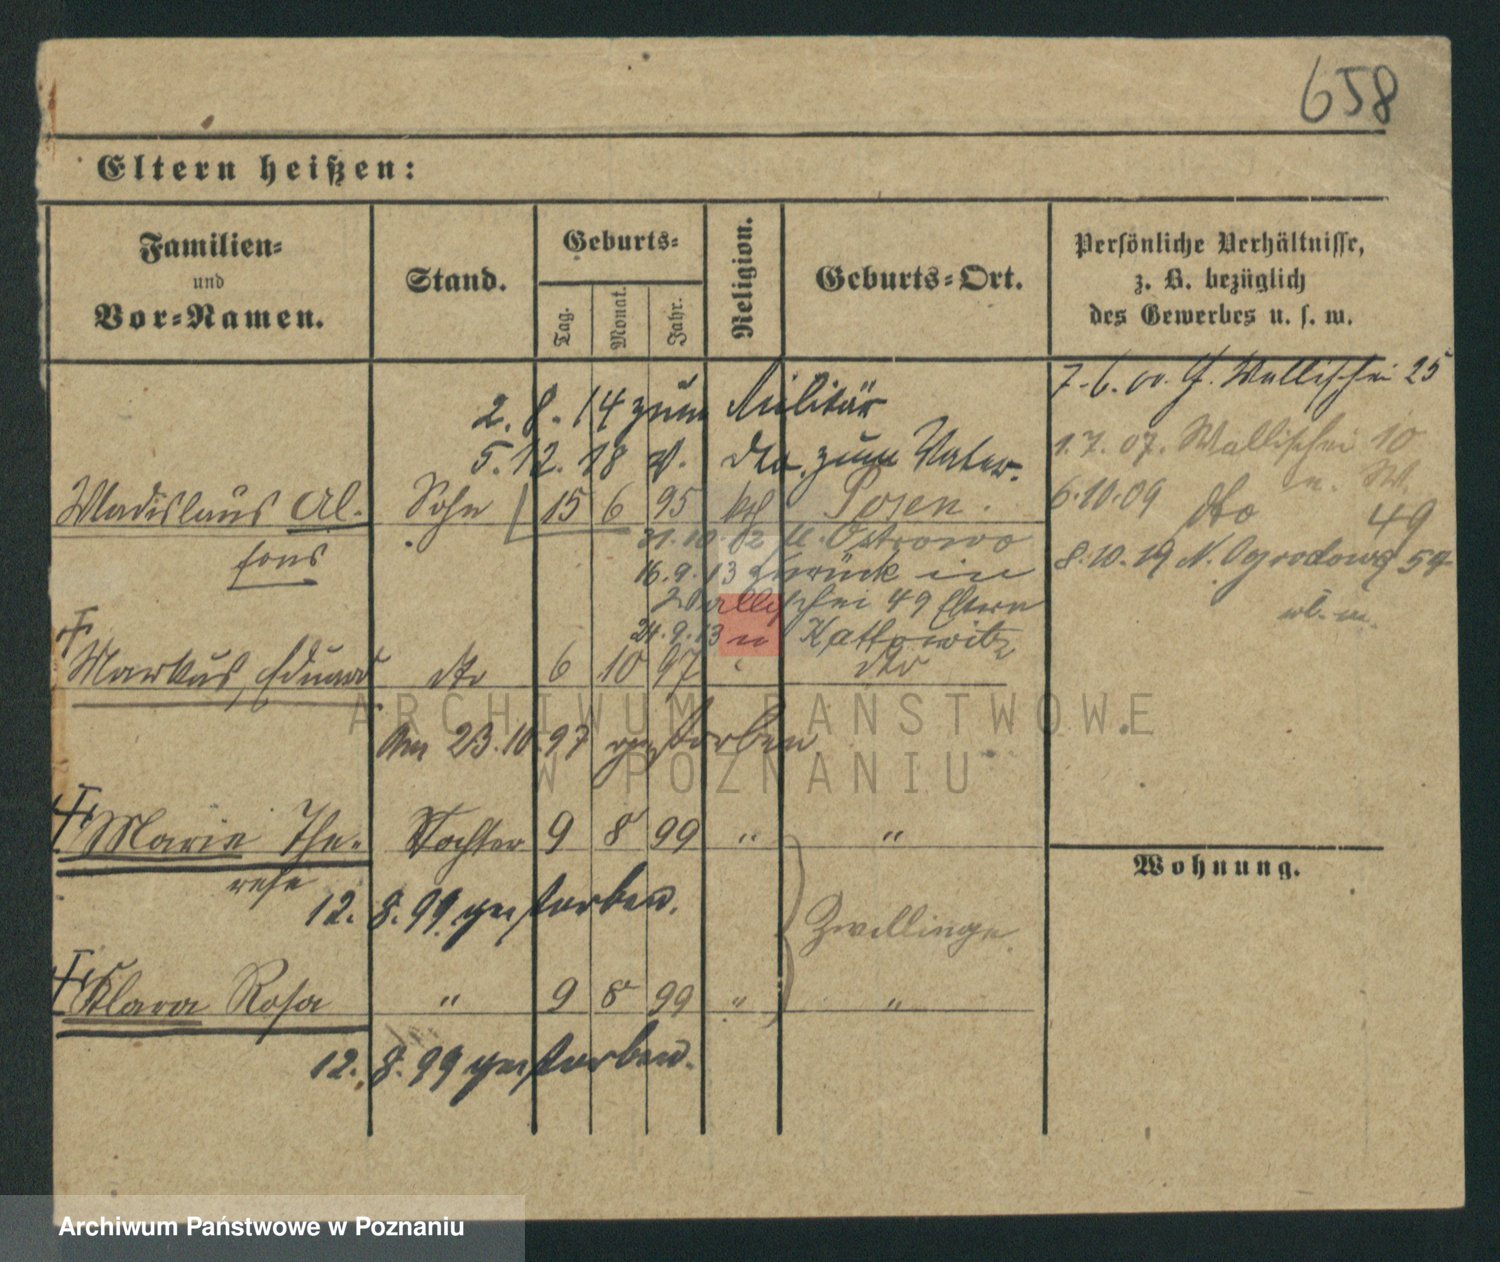 658
Eltern heißen:
Familien- und Vor-Namen.
Stand.
Geburts-
Tag.
Monat.
Jahr.
Religion.
Geburts-Ort.
Persönliche Verhältnisse, z. B. bezüglich des Gewerbes u. s. w.
7.6.00. Wallischei 25
2.8.14 zum Militär
1.7.07. Wallischei 10
5.12.18 v. dto zum Vater.
6.10.09 dto 49
Wladislaus Al- Sohn 15 6 95 kth Posen.
fons
21.10.12 Ostrowo
8.10.19 N. Ogrodowa 54
16.9.13 zurück in
Wallischei 49 Eltern
24.9.13 n Kattowitz
Markus, Eduard dto 6 10 97 " dto
Am 23.10.97 gestorben
Marie The- Tochter 9 8 99 " "
rese
Wohnung.
12.8.99 gestorben.
Zwillinge.
Klara Rosa " 9 8 99 " "
12.8.99 gestorben.
ARCHIWUM PAŃSTWOWE
W POZNANIU
Archiwum Państwowe w Poznaniu